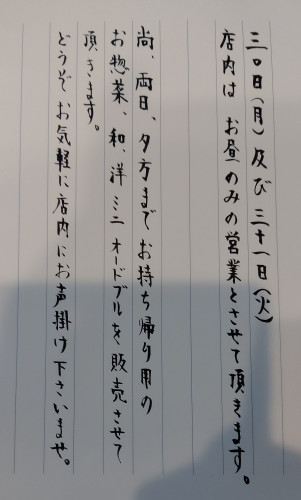 三〇日(月)及び三十一日(火)
店内は お昼のみの営業とさせて頂きます。
尚、両日、夕方までお持ち帰り用の
お惣菜、和、洋ミニオードブルを販売させて
頂きます。
どうぞ お気軽に店内にお声掛け下さいませ。